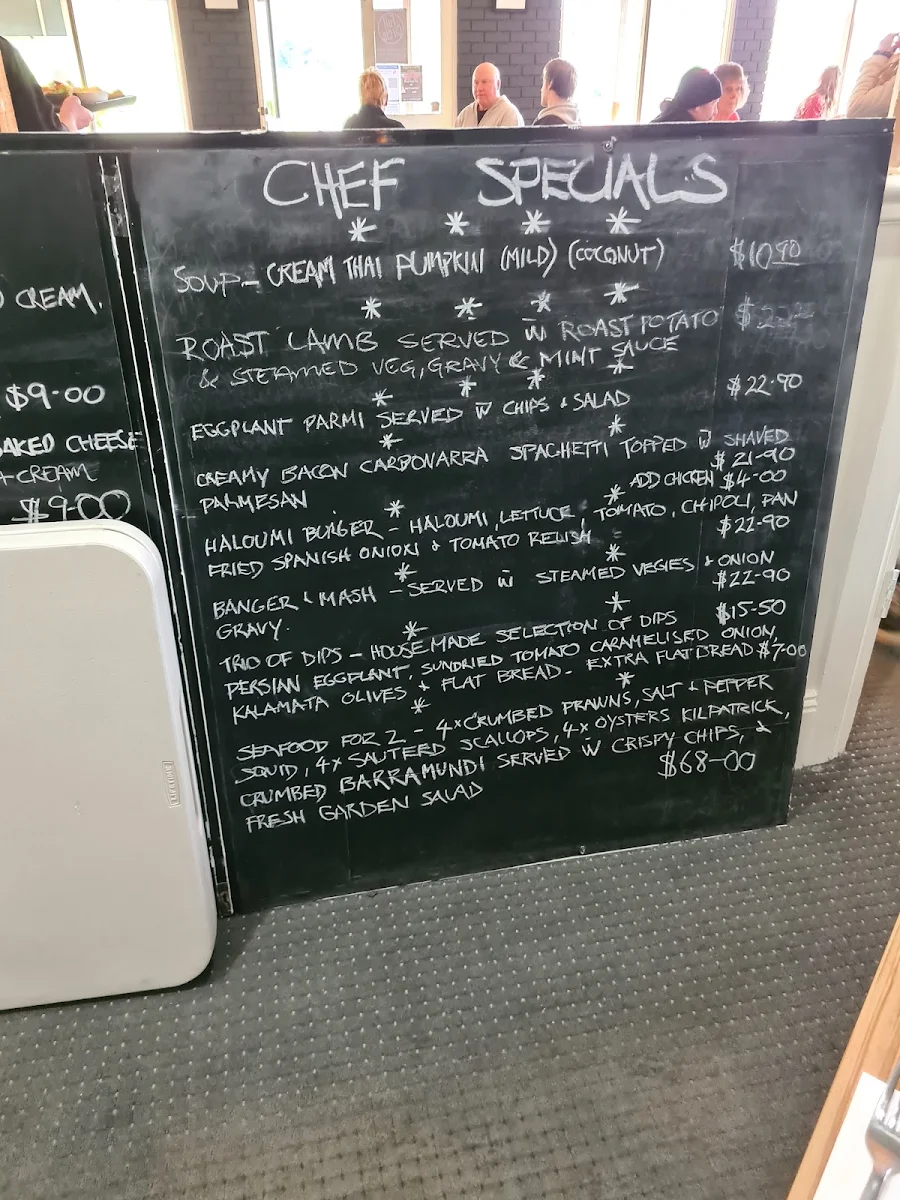 CHEF SPECIALS
* * * *
SOUP - CREAM THAI PUMPKIN (MILD) (COCONUT) $10.90
* * * *
ROAST LAMB SERVED W ROAST POTATO
& STEAMED VEG, GRAVY & MINT SAUCE
* * * *
EGGPLANT PARMI SERVED W CHIPS & SALAD $22.90
* *
CREAMY BACON CARBONARRA SPAGHETTI TOPPED W SHAVED
PALMESAN $21-90
ADD CHICKEN $4-00
* *
HALOUMI BURGER - HALOUMI, LETTUCE TOMATO, CHIPOLI, PAN
FRIED SPANISH ONION & TOMATO RELISH $21-90
* *
BANGER & MASH - SERVED W STEAMED VEGIES & ONION
GRAVY. $22-90
* *
TRIO OF DIPS - HOUSEMADE SELECTION OF DIPS $15-50
PERSIAN EGGPLANT, SUNDRIED TOMATO CARAMELISED ONION,
KALAMATA OLIVES & FLAT BREAD - EXTRA FLATBREAD $7-00
* *
SEAFOOD FOR 2 - 4x CRUMBED PRAWNS, SALT & PEPPER
SQUID, 4x SAUTEED SCALLOPS, 4x OYSTERS KILPATRICK, &
CRUMBED BARRAMUNDI SERVED W CRISPY CHIPS,
FRESH GARDEN SALAD $68-00
CREAM.
$9.00
BAKED CHEESE
CREAM
$9.00
LIFETIME